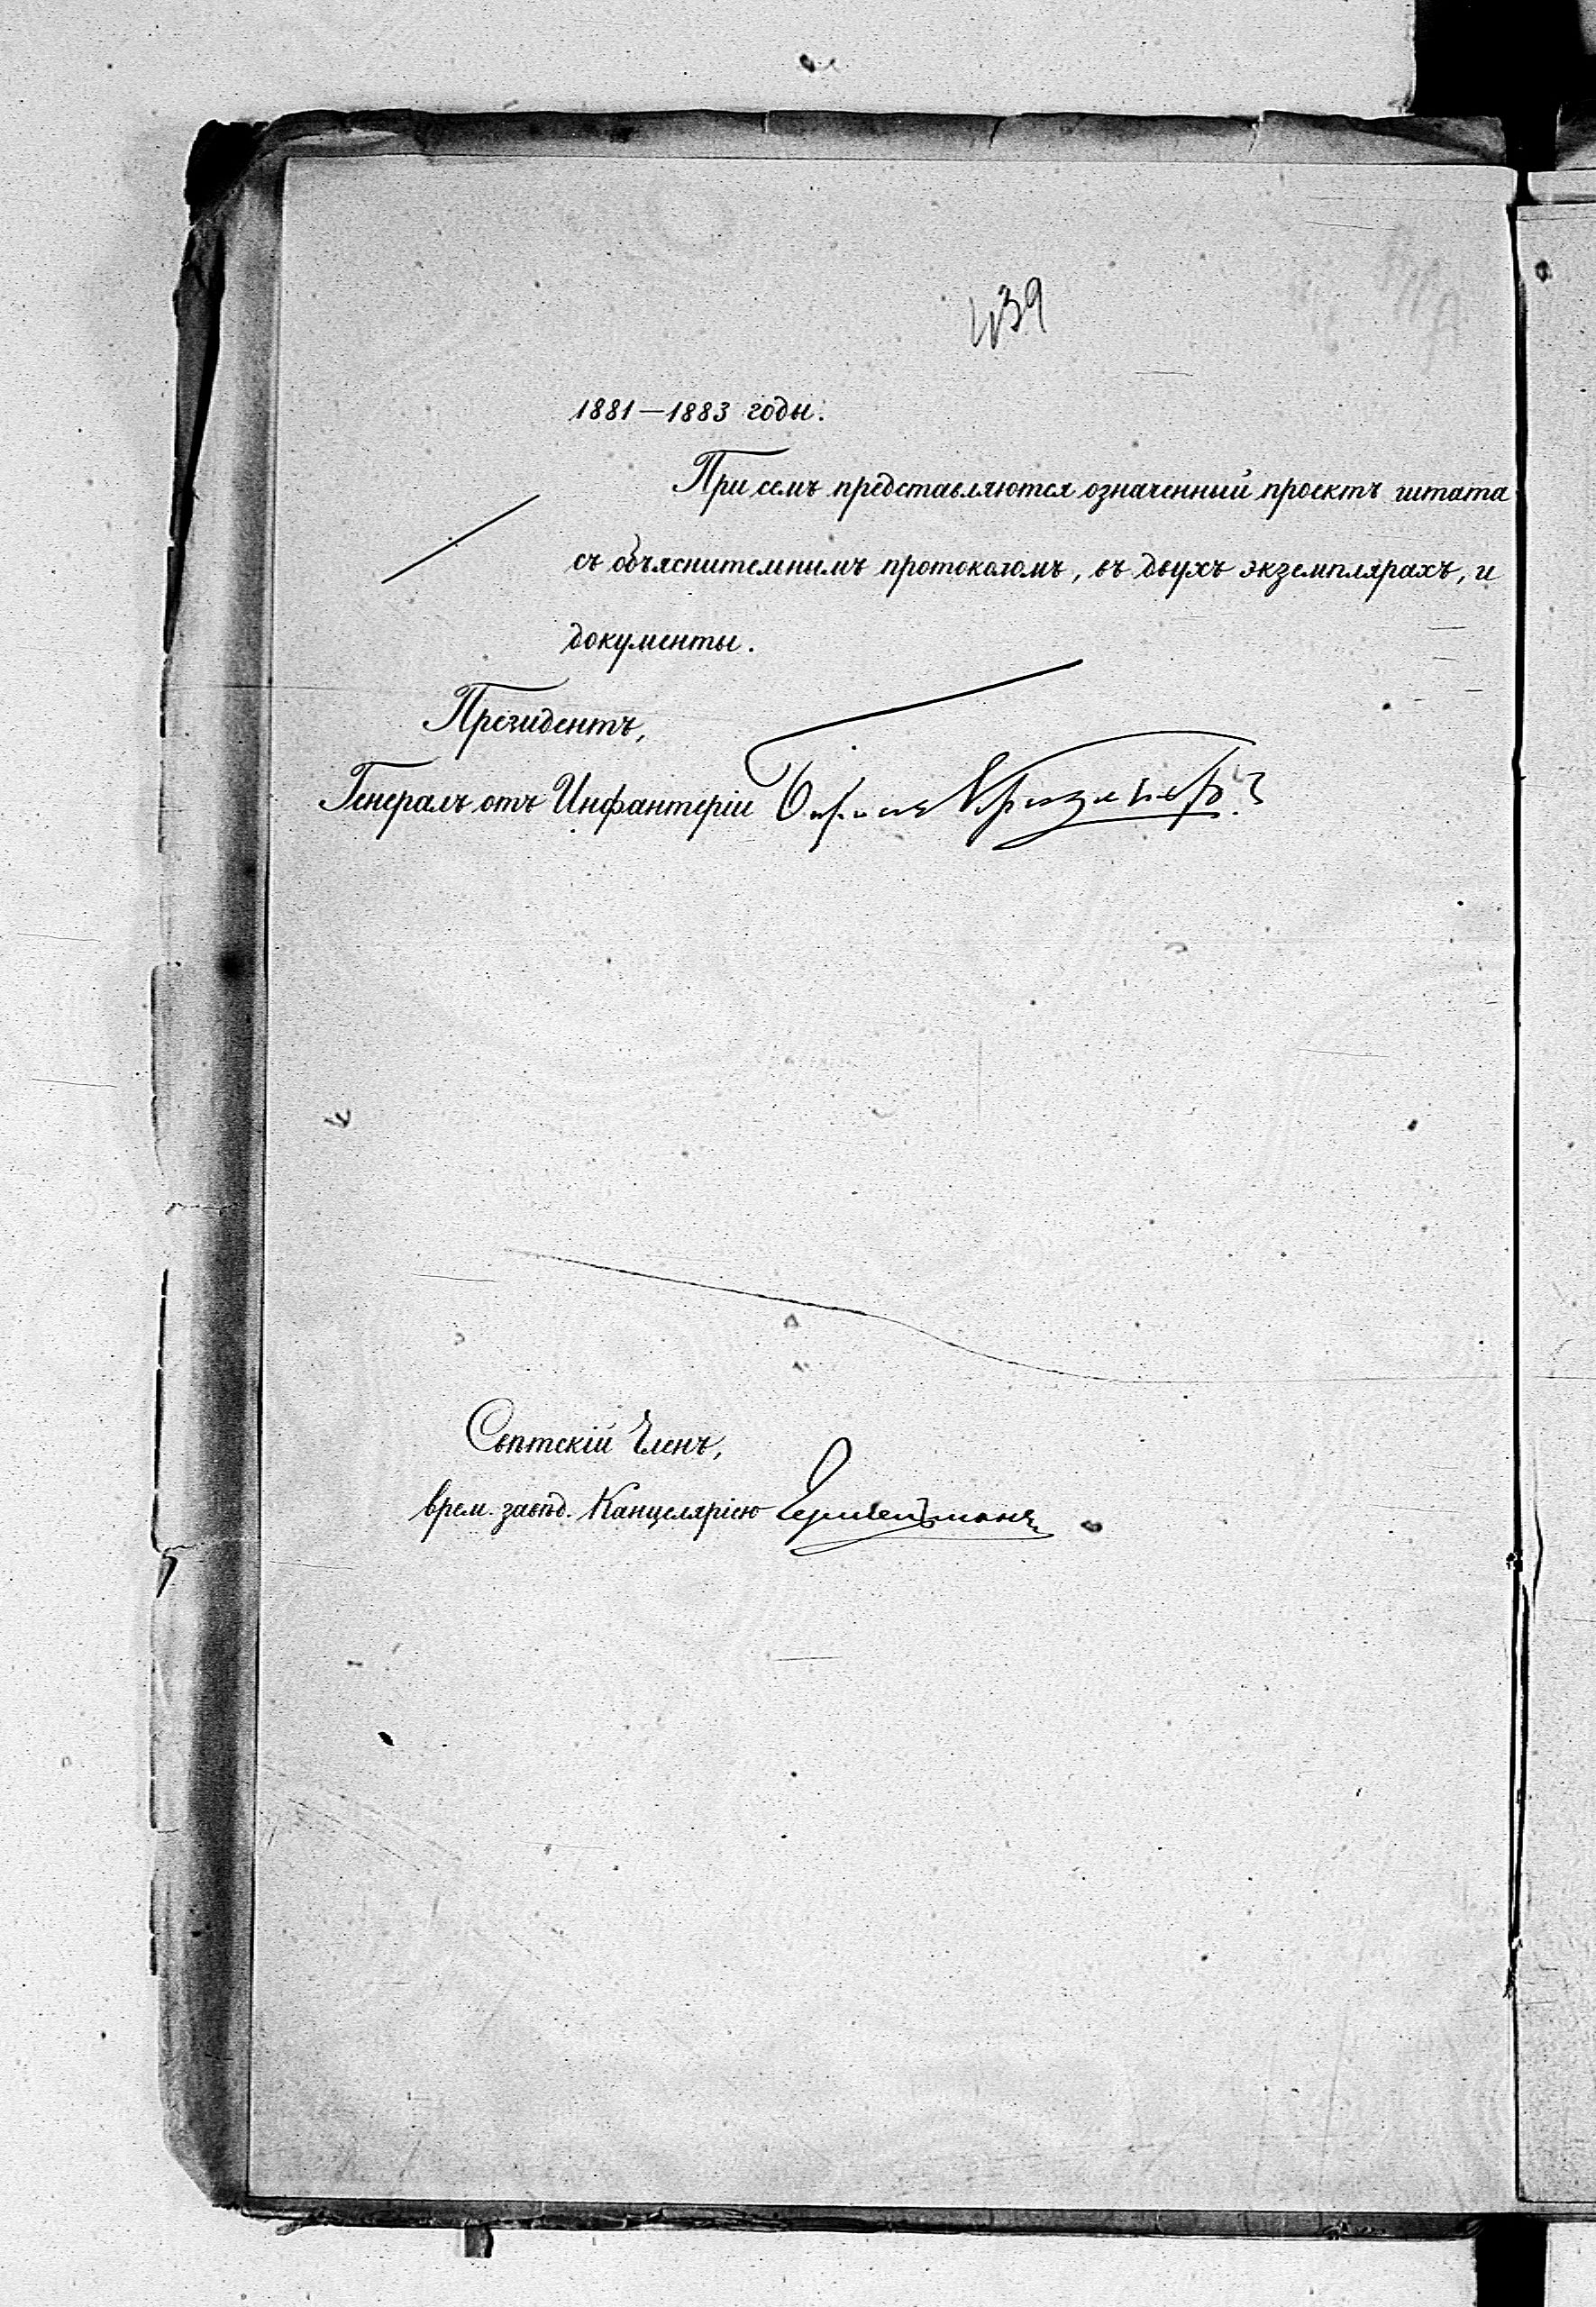 439
1881—1883 годы.
При семъ представляются означенный проектъ штата
съ объяснительнымъ протоколомъ, въ двухъ экземплярахъ, и
документы.
Президентъ,
Генералъ отъ Инфантеріи Баронъ Криденеръ
Свѣтскій Членъ,
врем. завѣд. Канцеляріею